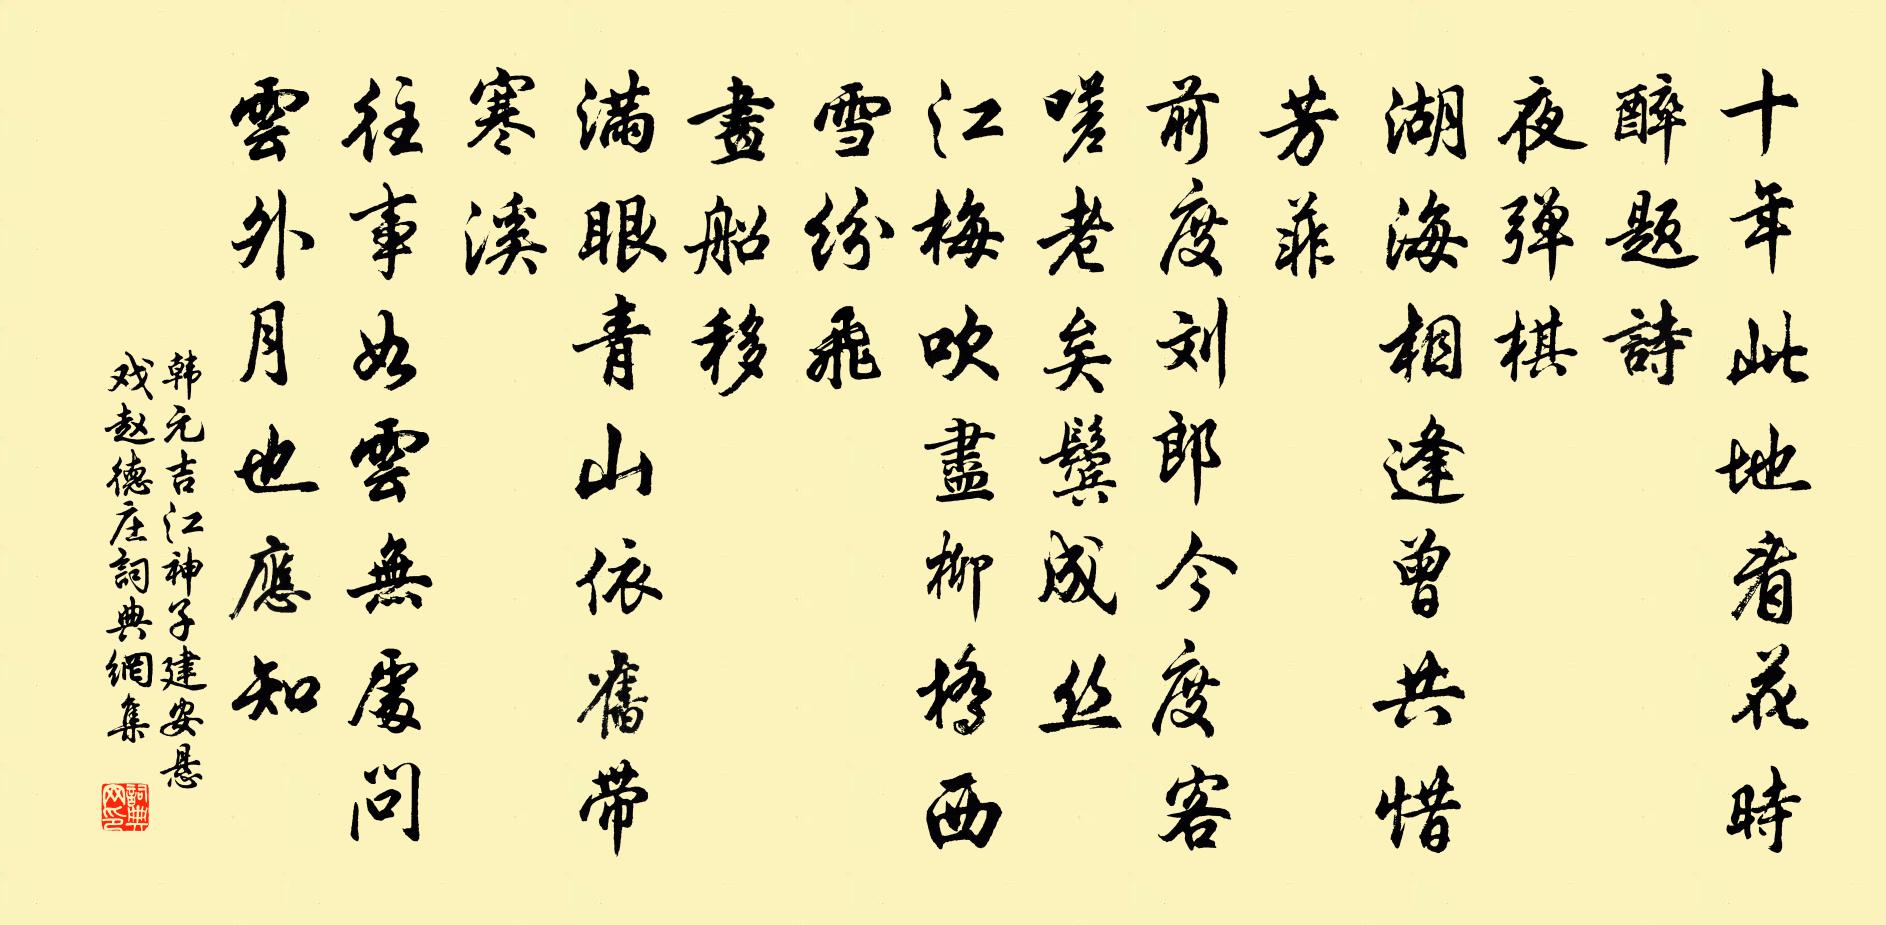 十年此地看花時
醉题詩
夜彈棋
湖海相逢曾共惜
芳菲
前度刘郎今度客
嗟老矣鬓成丝
江梅吹盡柳橋西
雪纷飛
畫船移
滿眼青山依舊带
寒溪
往事如雲無處問
雲外月也應知
韩元吉江神子建安县
戏赵德庄詞典網集
詞典
网印